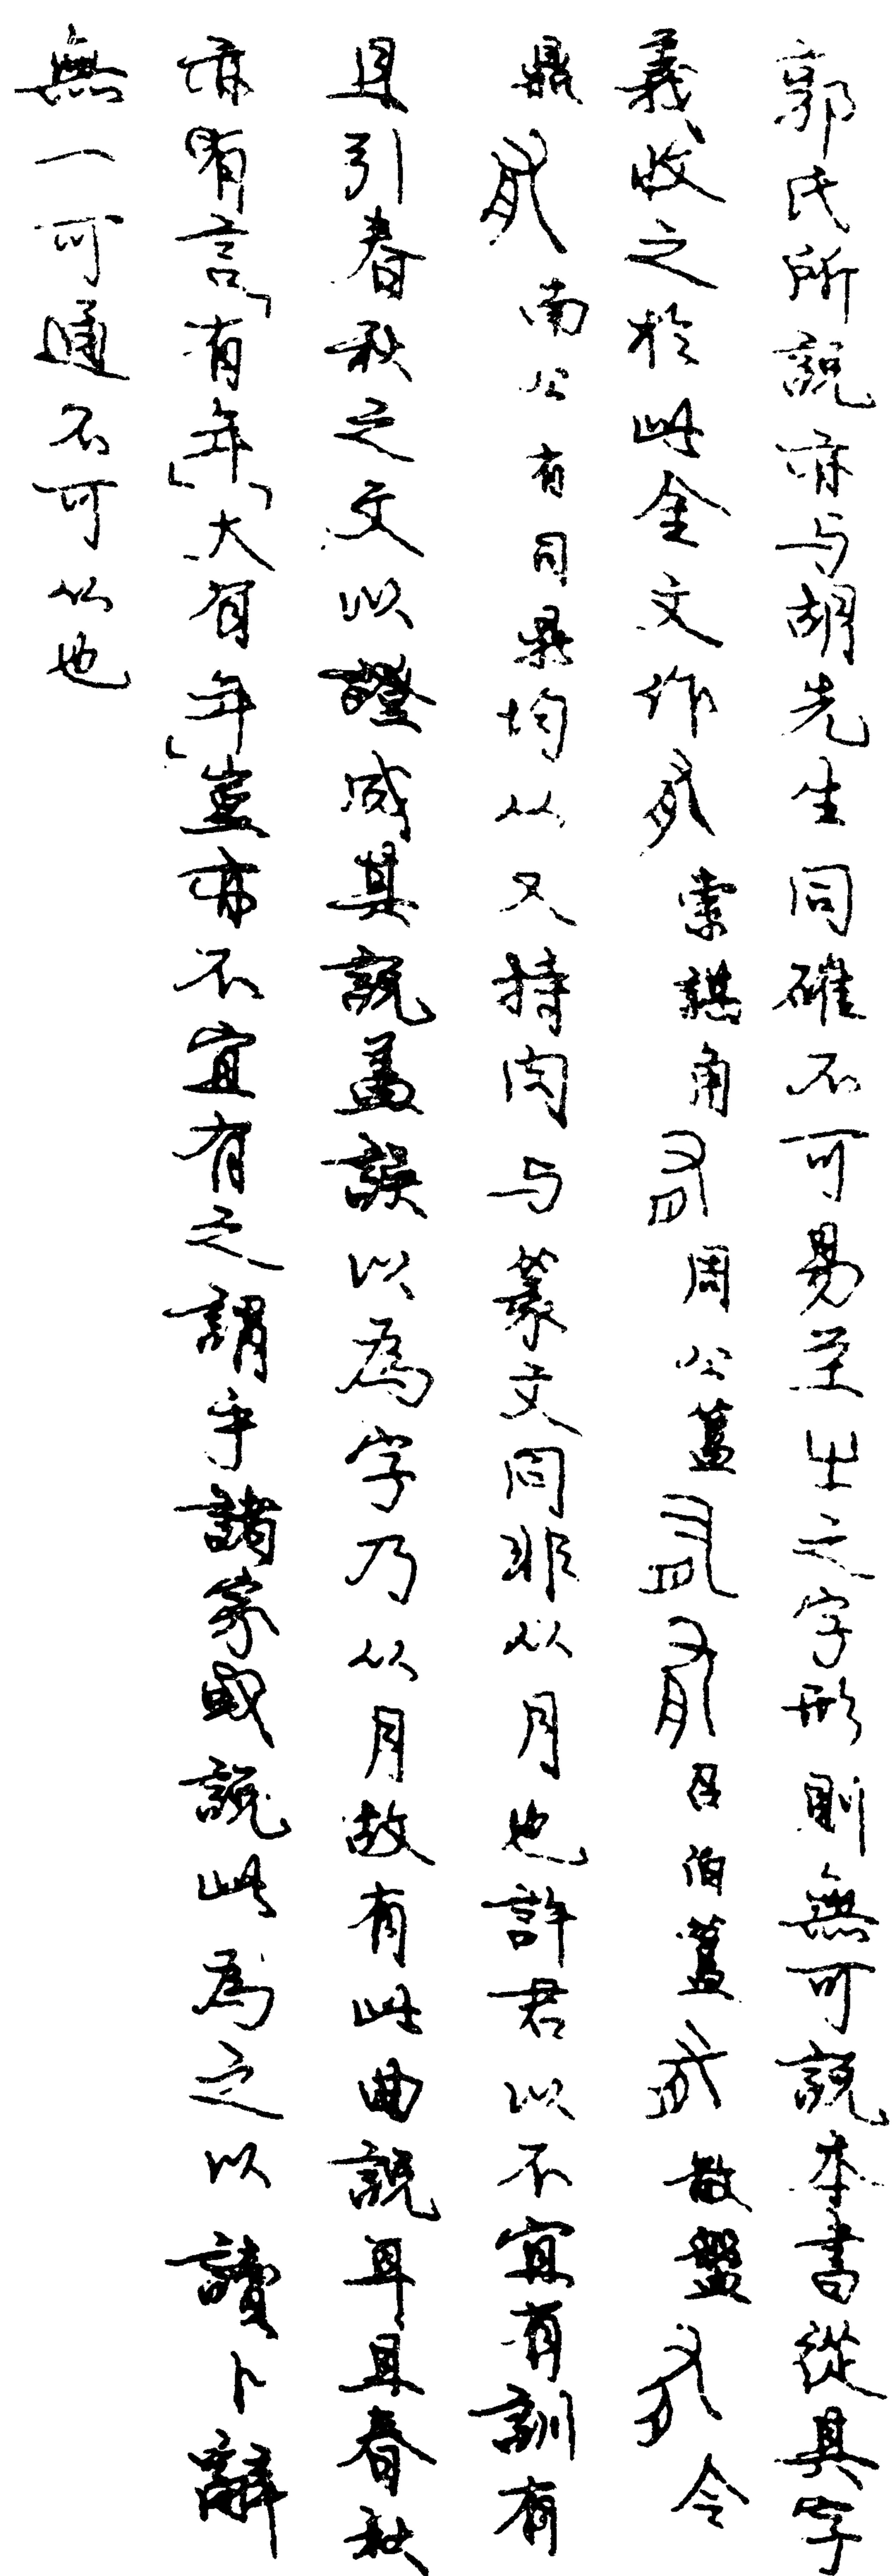 郭氏所説亦与胡先生同確不可易至㞢之字形則無可説本書從其字
義收之於此金文作索諆角周公簋召伯簋散盤令
鼎南公有司鼎均从又持肉与篆文同非从月也許君以不宜有訓有
且引春秋之文以證成其説蓋誤以為字乃从月故有此曲説耳且春秋
亦有言「有年」「大有年」豈亦不宜有之謂乎諸家或説此為之以讀卜辭
無一可通不可从也